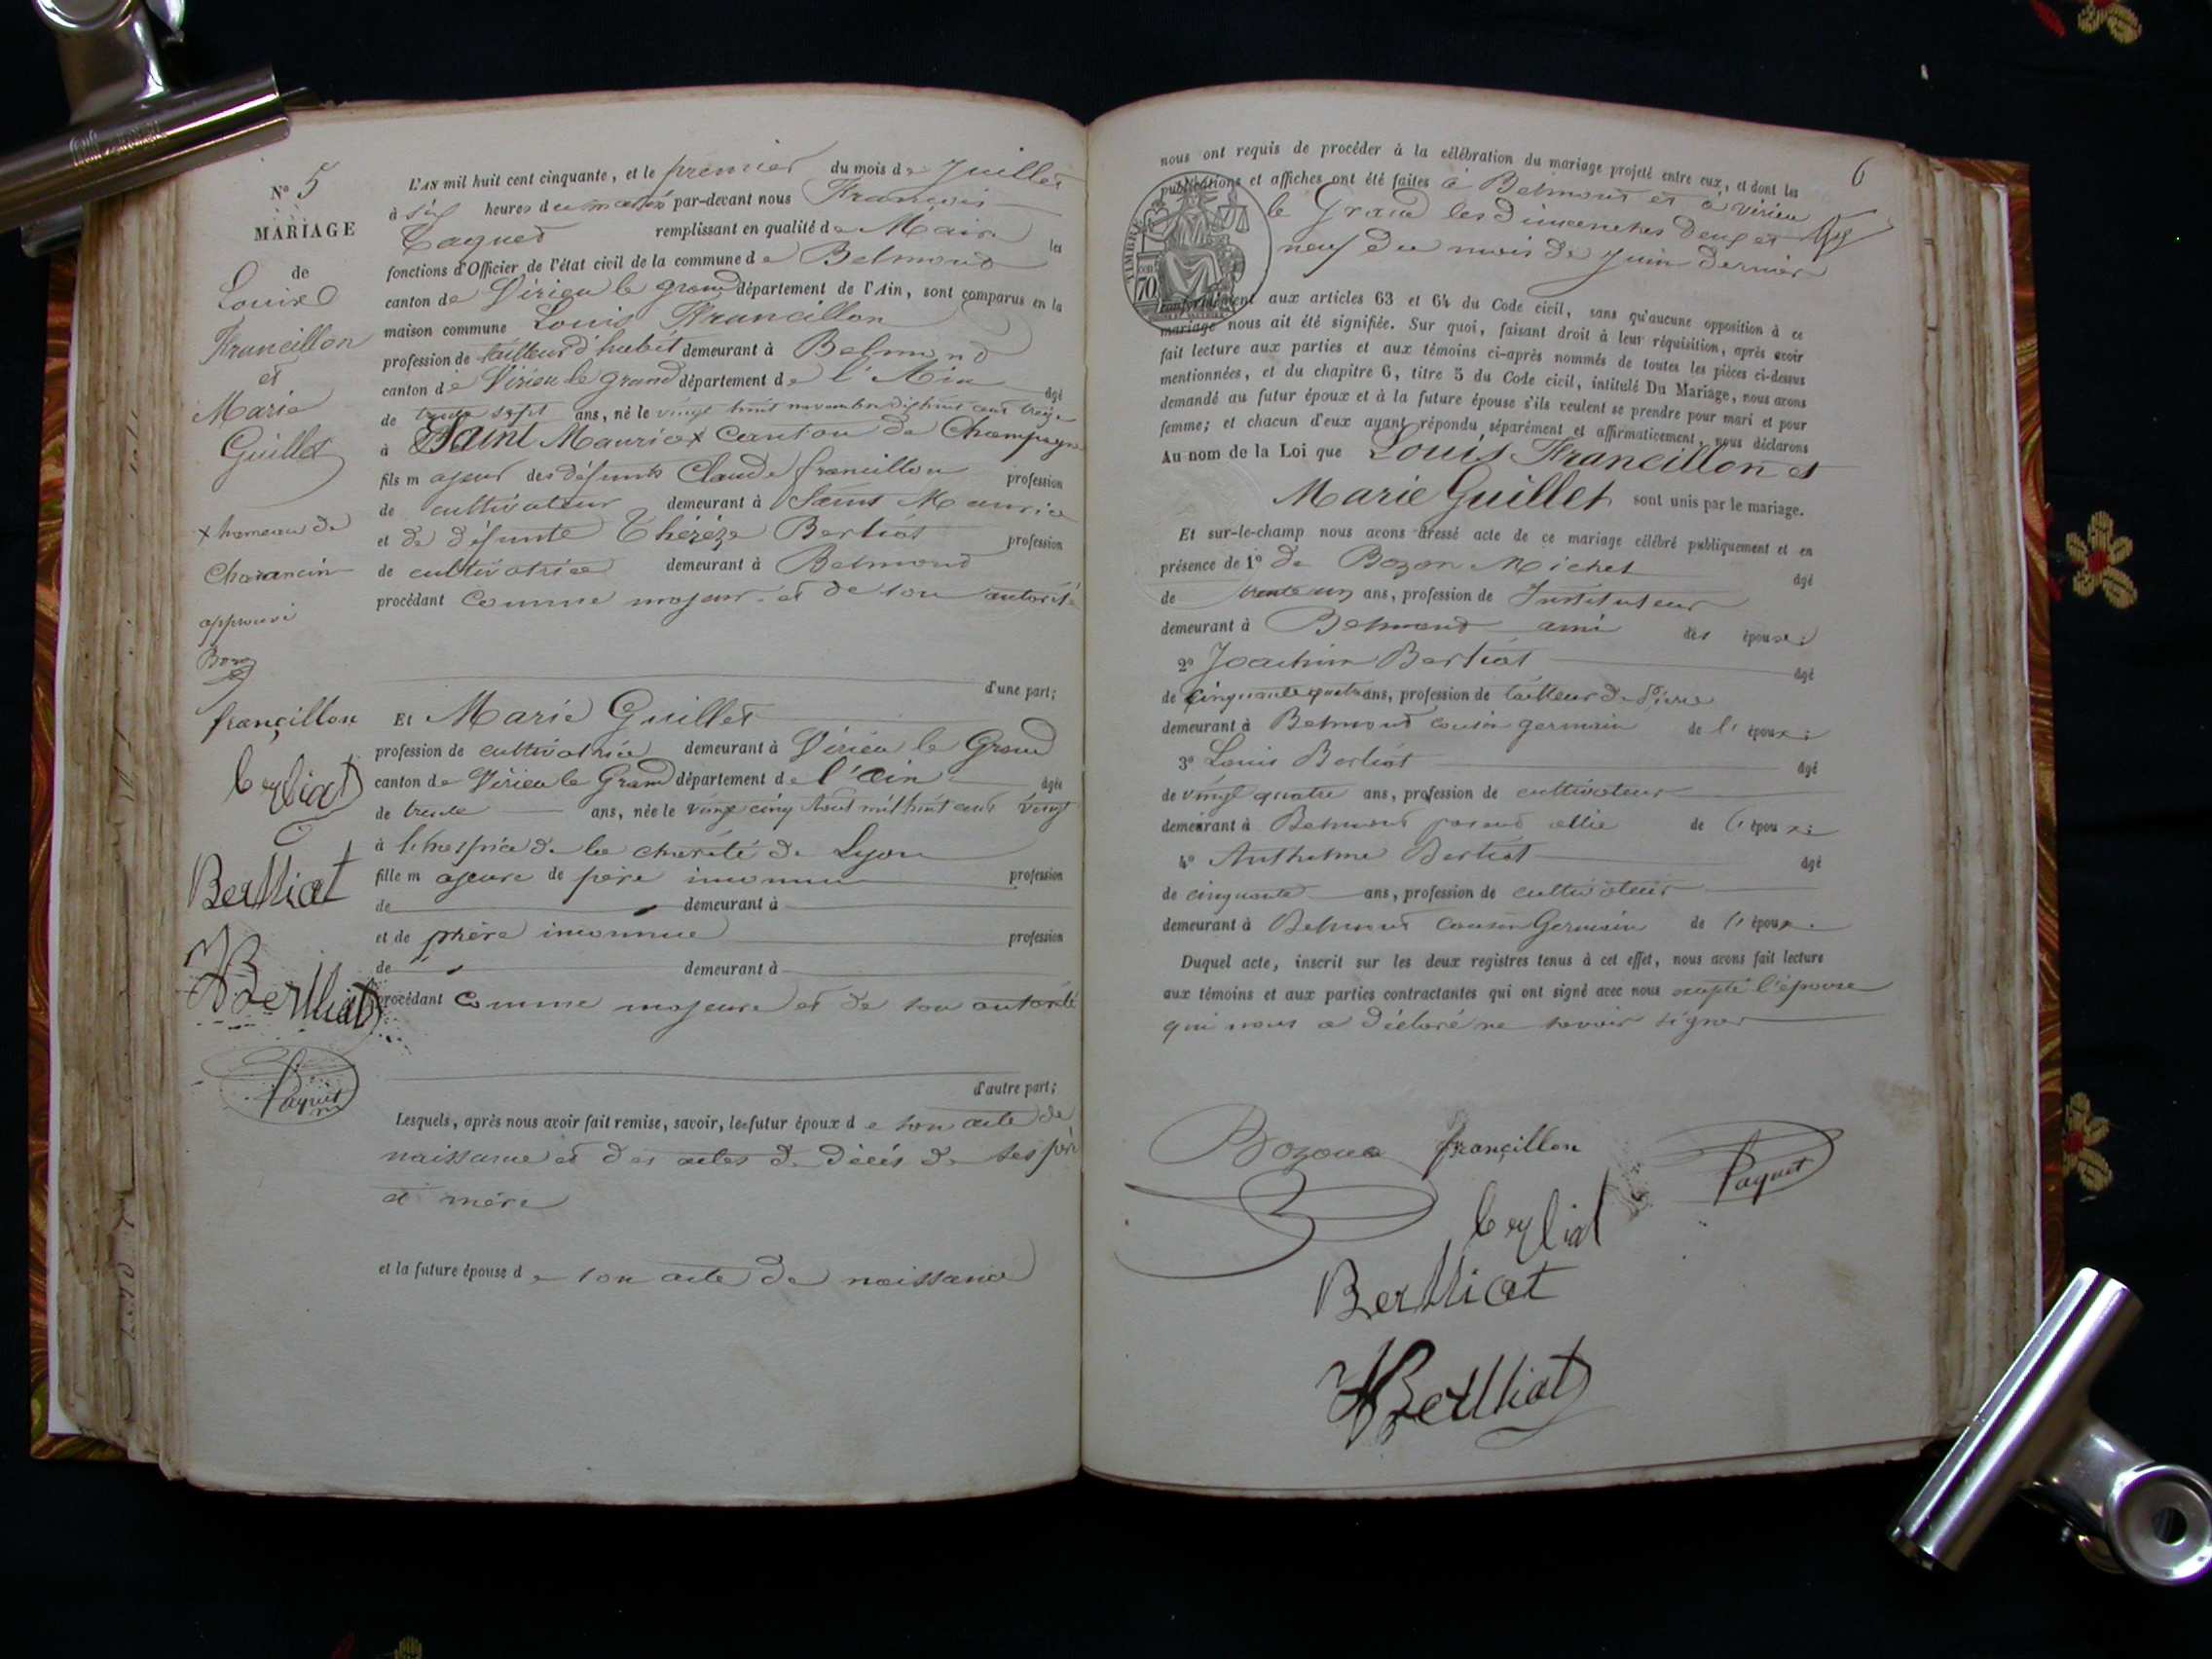 N° 5
MARIAGE
de
Louis
Francillon
et
Marie
Guillet
x hameau de
Charancin
approuvé
françillon
Berliat
Berthiat
Berthiat
Paquet
L'AN mil huit cent cinquante, et le premier du mois de Juillet
à six heures du matin par-devant nous François
Paquet remplissant en qualité de Maire les
fonctions d'Officier de l'état civil de la commune de Belmond
canton de Virieu le grand département de l'Ain, sont comparus en la
maison commune Louis Francillon
profession de tailleur d'habit demeurant à Belmond
canton de Virieu le grand département de l'Ain âgé
de trente sept ans, né le vingt huit novembre dix huit cent treize
à Saint Maurice x canton de Champagne
fils majeur des défunts Claude francillon profession
de cultivateur demeurant à Saint Maurice
et de défunte Thérèze Berliat profession
de cultivatrice demeurant à Belmond
procédant comme majeur et de son autorité
d'une part;
Et Marie Guillet
profession de cultivatrice demeurant à Virieu le Grand
canton de Virieu le Grand département de l'Ain âgée
de trente ans, née le vingt cinq Aout mil huit cent vingt
à l'hospice de la charité de Lyon
fille majeure de père inconnu profession
de demeurant à
et de mère inconnue profession
de demeurant à
procédant comme majeure et de son autorité
d'autre part;
Lesquels, après nous avoir fait remise, savoir, le futur époux de son acte de
naissance et des actes de décès de ses père
et mère
et la future épouse de son acte de naissance
6
nous ont requis de procéder à la célébration du mariage projeté entre eux, et dont les
publications et affiches ont été faites à Belmont et à Virieu
le Grand les dimanches deux et
neuf du mois de Juin dernier
TIMBRE
70
conformément aux articles 63 et 64 du Code civil, sans qu'aucune opposition à ce
mariage nous ait été signifiée. Sur quoi, faisant droit à leur réquisition, après avoir
fait lecture aux parties et aux témoins ci-après nommés de toutes les pièces ci-dessus
mentionnées, et du chapitre 6, titre 5 du Code civil, intitulé Du Mariage, nous avons
demandé au futur époux et à la future épouse s'ils veulent se prendre pour mari et pour
femme; et chacun d'eux ayant répondu séparément et affirmativement, nous déclarons
Au nom de la Loi que Louis Francillon et
Marie Guillet sont unis par le mariage.
Et sur-le-champ nous avons dressé acte de ce mariage célébré publiquement et en
présence de 1° de Bozon Michel âgé
de trente un ans, profession de Instituteur
demeurant à Belmond ami des époux
2° Joachim Berliat âgé
de cinquante quatre ans, profession de tailleur de Pierre
demeurant à Belmond cousin germain de l'époux
3° Louis Berliat âgé
de vingt quatre ans, profession de cultivateur
demeurant à Belmond parent allié de l'époux
4° Anthelme Berliat âgé
de cinquante ans, profession de cultivateur
demeurant à Belmond cousin Germain de l'époux
Duquel acte, inscrit sur les deux registres tenus à cet effet, nous avons fait lecture
aux témoins et aux parties contractantes qui ont signé avec nous excepté l'épouse
qui nous a déclaré ne savoir signer
Bozon françillon Paquet
Berliat
Berthiat
Berthiat